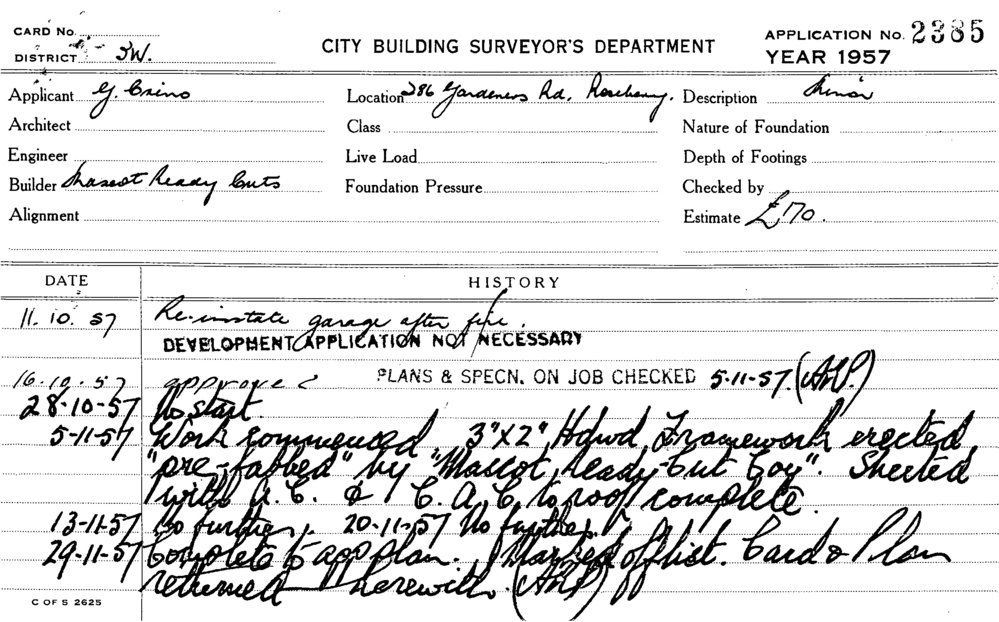 CARD No.
DISTRICT SW.
CITY BUILDING SURVEYOR'S DEPARTMENT
APPLICATION No. 2385
YEAR 1957
Applicant G. Crino Location 286 Gardeners Rd. Rosebery. Description Minor
Architect Class Nature of Foundation
Engineer Live Load Depth of Footings
Builder Mascot Ready Cuts Foundation Pressure Checked by
Alignment Estimate £170.
DATE HISTORY
11.10.57 Re-instate garage after fire.
DEVELOPMENT APPLICATION NOT NECESSARY
16.10.57 approved PLANS & SPECN. ON JOB CHECKED 5-11-57.
28-10-57 No start.
5-11-57 Work commenced. 3"X2" Hdwd Framework erected
"pre-fabbed" by "Mascot Ready-Cut Coy". Sheeted
with A.C. & C.A.C. to roof complete.
13-11-57 No further. 20-11-57 No further.
29-11-57 Complete to app plan. Marked off list. Card & Plan
returned herewith.
C OF S 2625